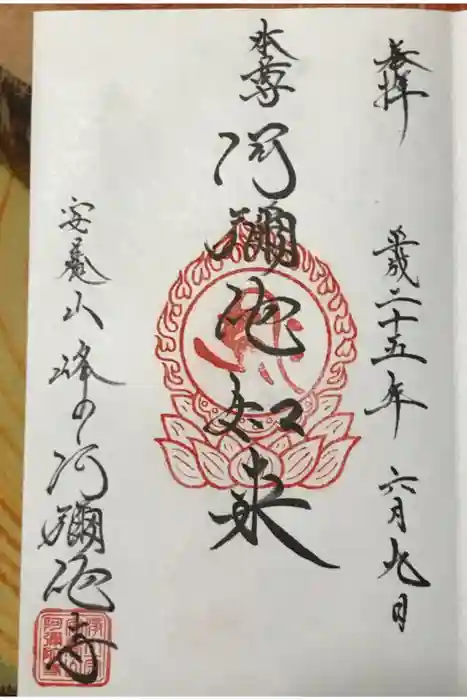 奉拝
平成二十五年 六月九日
本尊
阿彌陀如来
山峰の阿彌陀寺